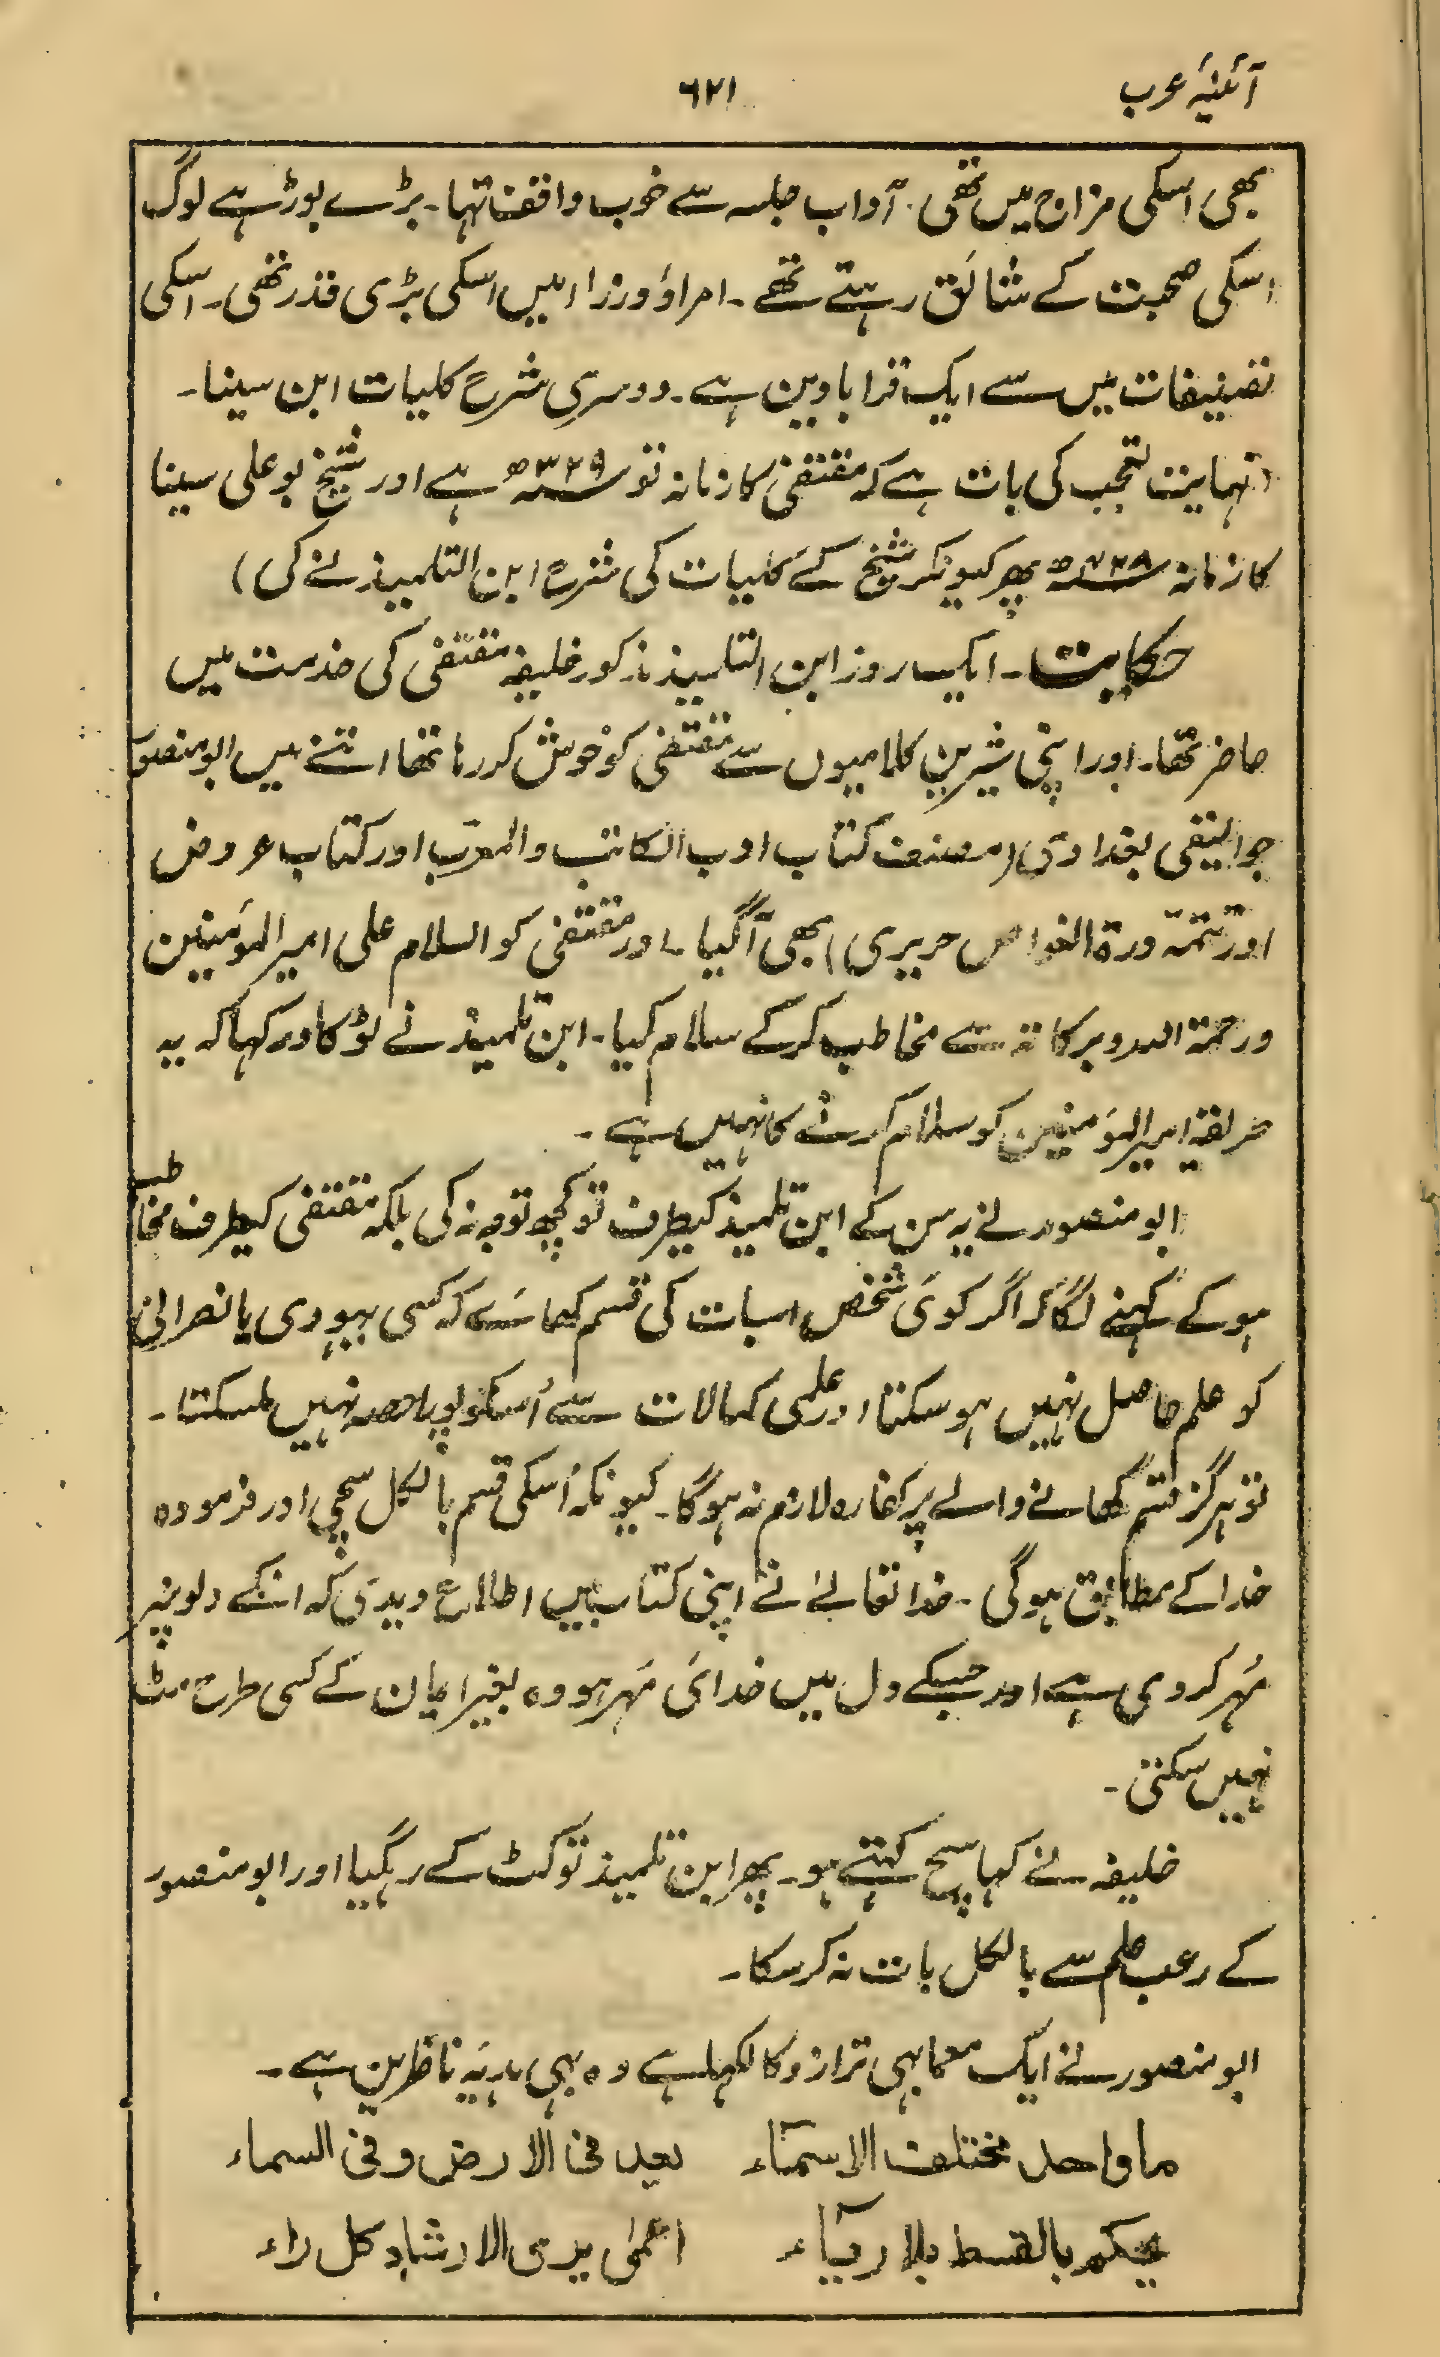 آئینۂ عرب
۶۲۱
بھی اسکی مزاج میں تھی۔ آداب جلسہ سے خوب واقف تہا۔ بڑے بوڑہے لوگ
اسکی صحبت کے شائق رہتے تھے۔ امراؤ وزرا میں اسکی بڑی قدر تھی۔ اسکی
تصنیفات میں سے ایک قرابادین ہے۔ دوسری شرح کلیات ابن سینا۔
(نہایت تعجب کی بات ہے کہ مقتفی کا زمانہ تو ۳۲۹ھ ہے اور شیخ بو علی سینا
کا زمانہ ۴۲۸ھ پھر کیونکر شیخ کے کلیات کی شرح ابن التلمیذ نے کی)
حکایت۔ ایک روز ابن التلمیذ مذکور خلیفہ مقتفی کی خدمت میں
حاضر تھا۔ اور اپنی شیرین کلامیوں سے مقتفی کو خوش کر رہا تھا اتنے میں ابو منصور
جوالیقی بغدادی (مصنف کتاب ادب الکاتب والمعرب اور کتاب عروض
اور تتمۃ درۃ الغواص حریری) بھی آگیا۔ اور مقتفی کو السلام علی امیر المؤمنین
ورحمۃ اللہ وبرکاتہ سے مخاطب کرکے سلام کیا۔ ابن تلمیذ نے ٹوکا اور کہا کہ یہ
طریقہ امیر المؤمنین کو سلام کرنے کا نہیں ہے۔
ابو منصور نے یہ سن کے ابن تلمیذ کیطرف تو کچھ توجہ نہ کی بلکہ مقتفی کیطرف مخاطب
ہوکے کہنے لگا کہ اگر کوئی شخص اسبات کی قسم کھائے کہ کسی یہودی یا نصرانی
کو علم حاصل نہیں ہو سکتا اور علمی کمالات سے اُسکو پورا حصہ نہیں ملسکتا۔
تو ہرگز قسم کھانے والے پر کفارہ لازم نہ ہوگا۔ کیونکہ اُسکی قسم بالکل سچی اور فرمودہ
خدا کے مطابق ہوگی۔ خدا تعالےٰ نے اپنی کتاب میں اطلاع دیدی کہ انکے دلونپر
مُہر کردی ہے اور جسکے دل میں خدائی مُہر ہو وہ بغیر ایمان کے کسی طرح مٹ
نہیں سکتی۔
خلیفہ نے کہا سچ کہتے ہو۔ پھر ابن تلمیذ تو کٹ کے رہگیا اور ابو منصور
کے رعب علم سے بالکل بات نہ کرسکا۔
ابو منصور نے ایک معما بہی ترازو کا لکہا ہے وہ بہی ہدیۂ ناظرین ہے۔
ما واحد مختلف الاسمآء یعدل فی الارض وفی السماء
یحکم بالقسط بلا ریآء اعمیٰ یری الارشاد کل راء